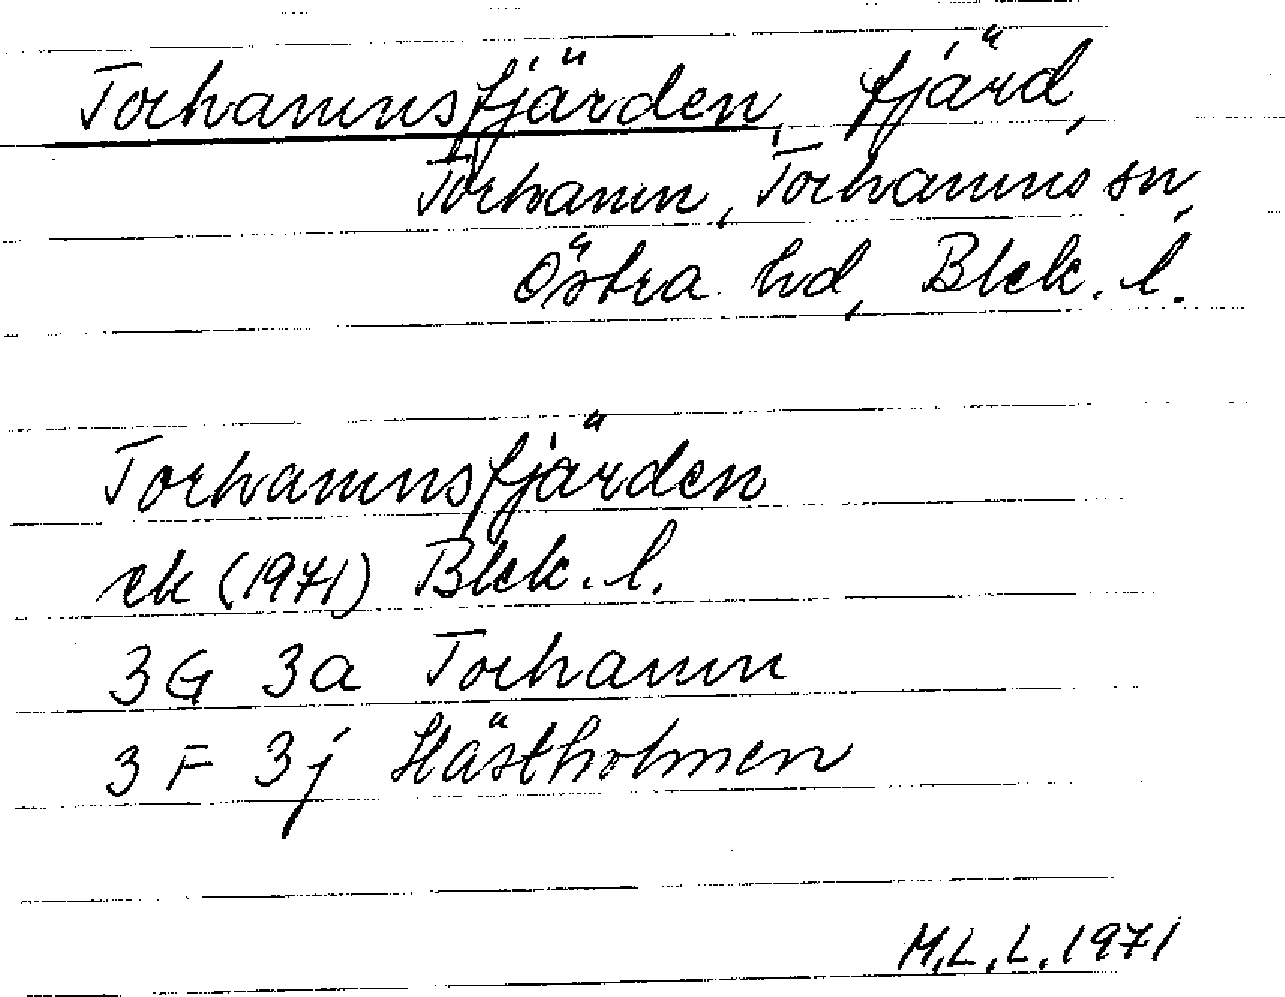 Torhamnsfjärden, fjärd,
Torhamn, Torhamns sn,
Östra hd, Blek. l.
Torhamnsfjärden
ek (1971) Blek. l.
3G 3a Torhamn
3F 3j Hästholmen
M.L.L. 1971